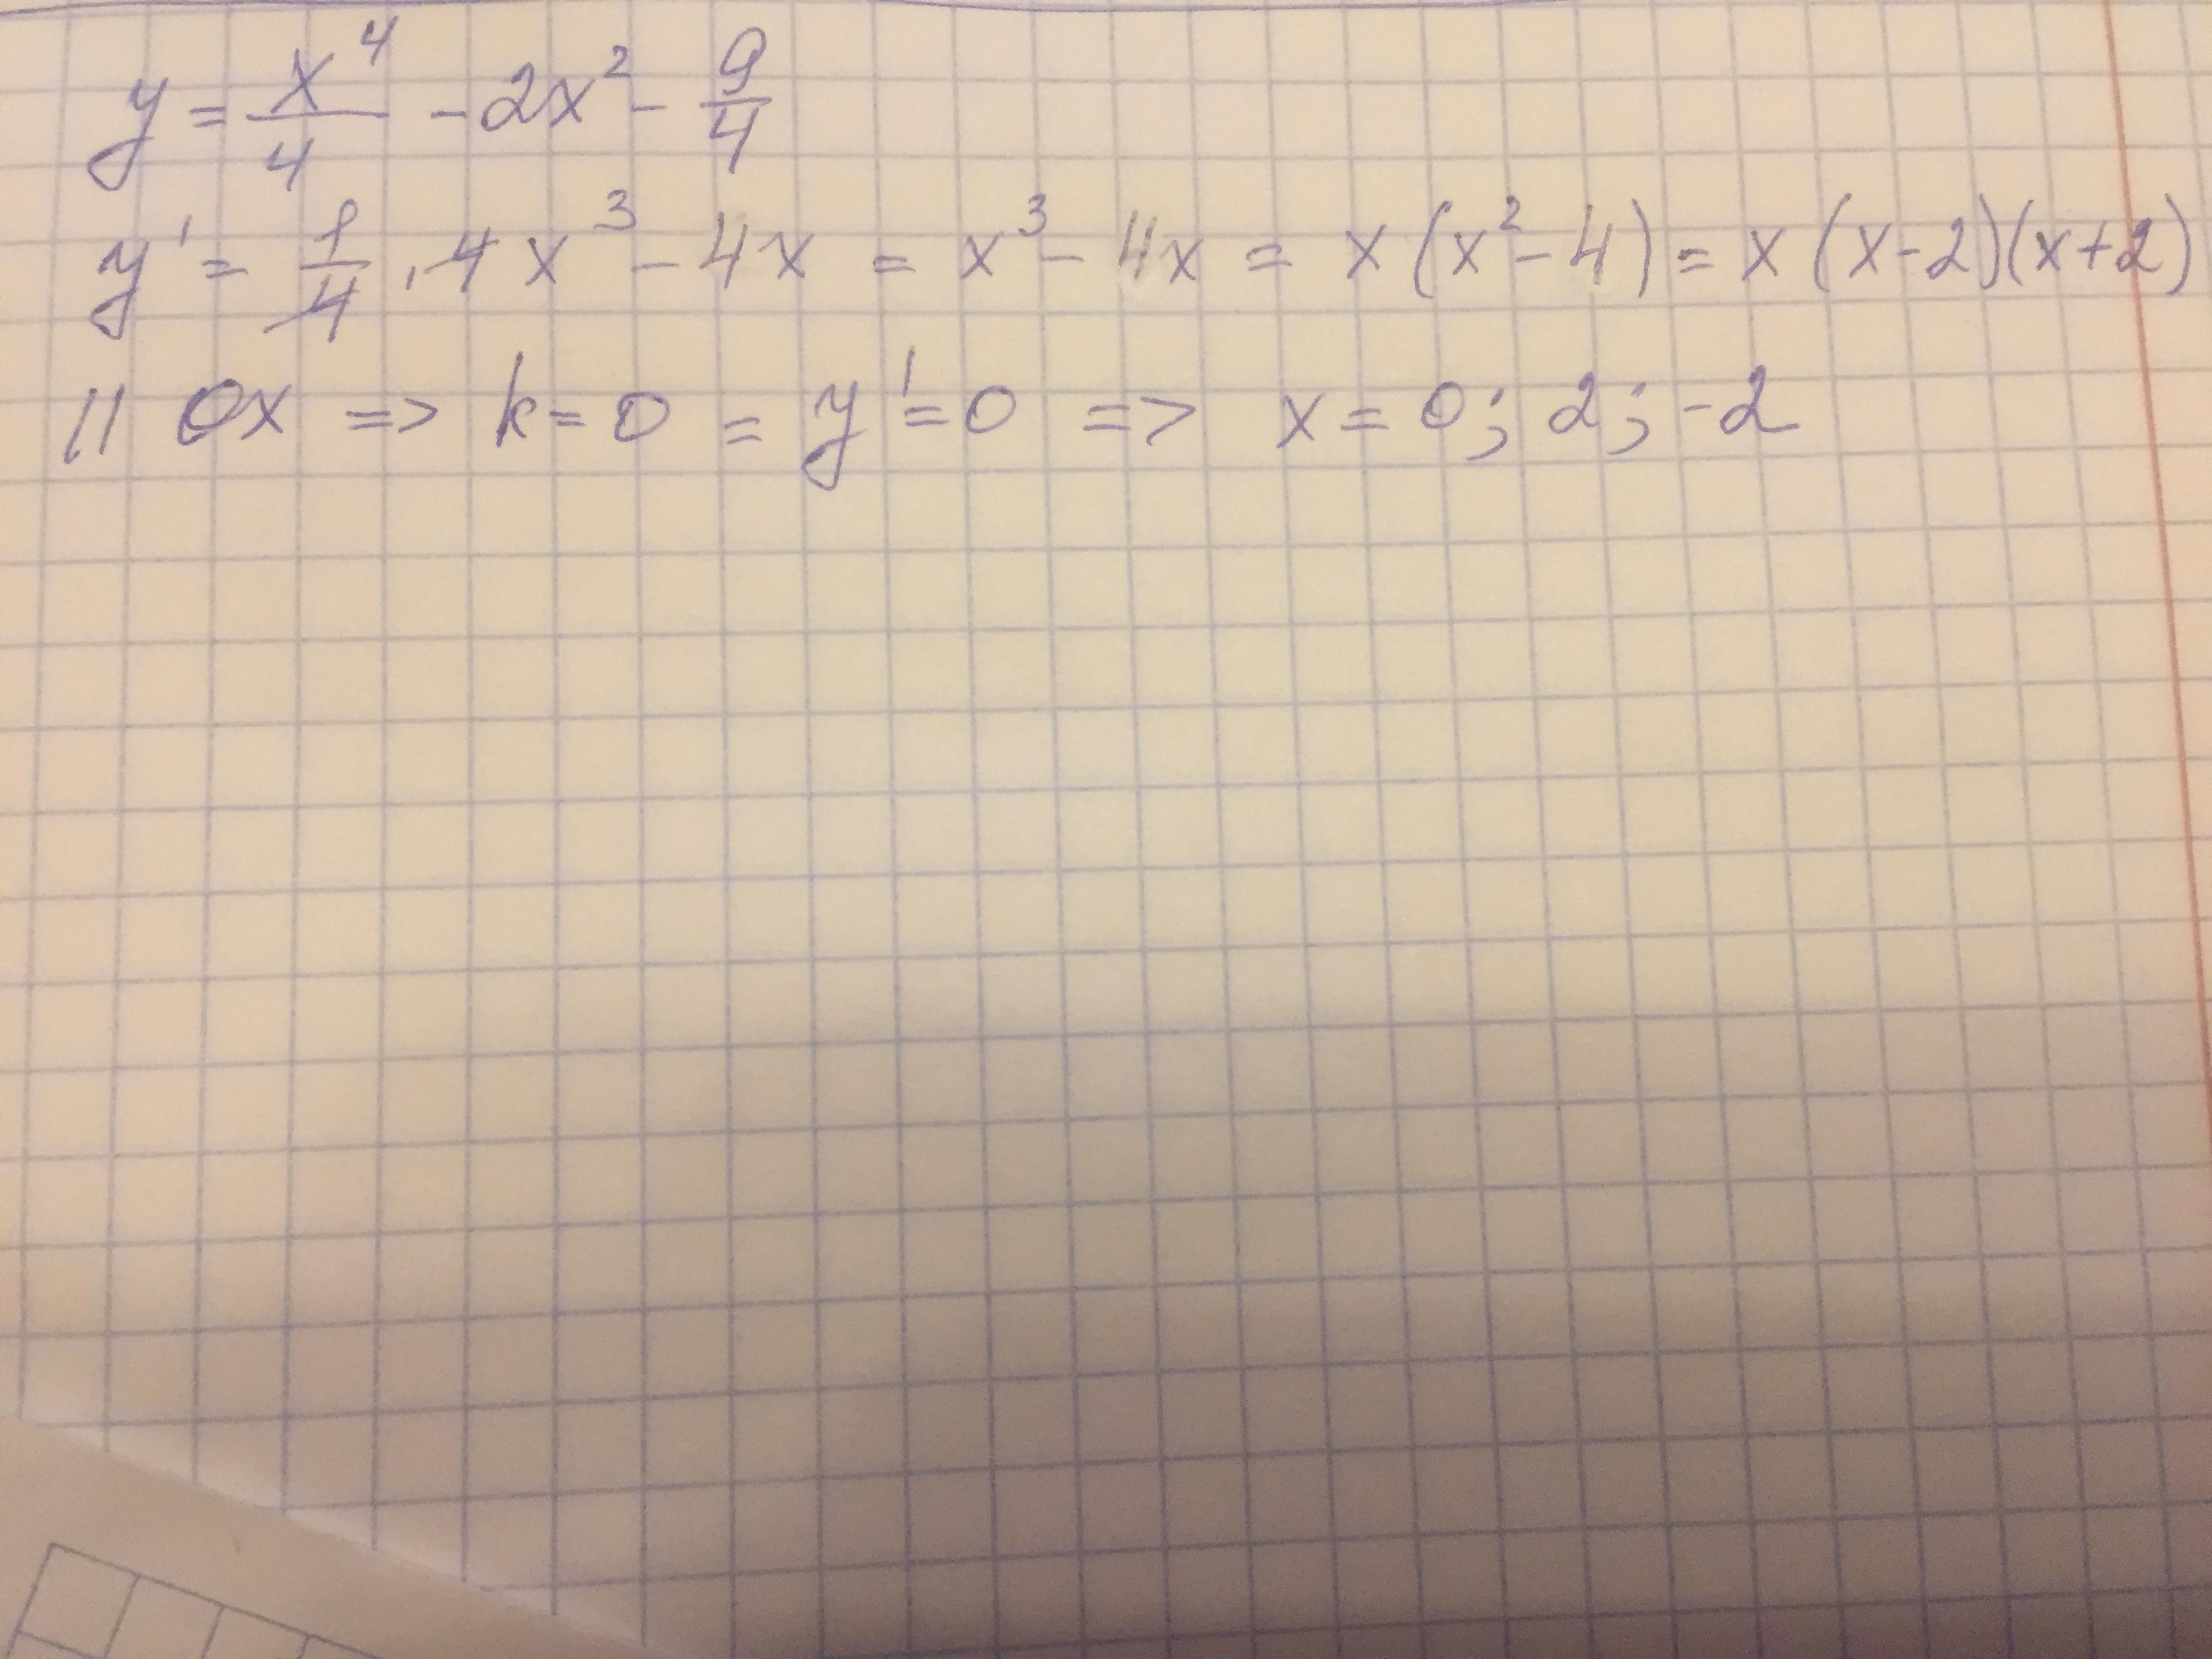 y = x⁴/4 - 2x² - 9/4
y' = 1/4 · 4x³ - 4x = x³ - 4x = x(x² - 4) = x(x-2)(x+2)
|| Ox => k = 0 = y' = 0 => x = 0; 2; -2